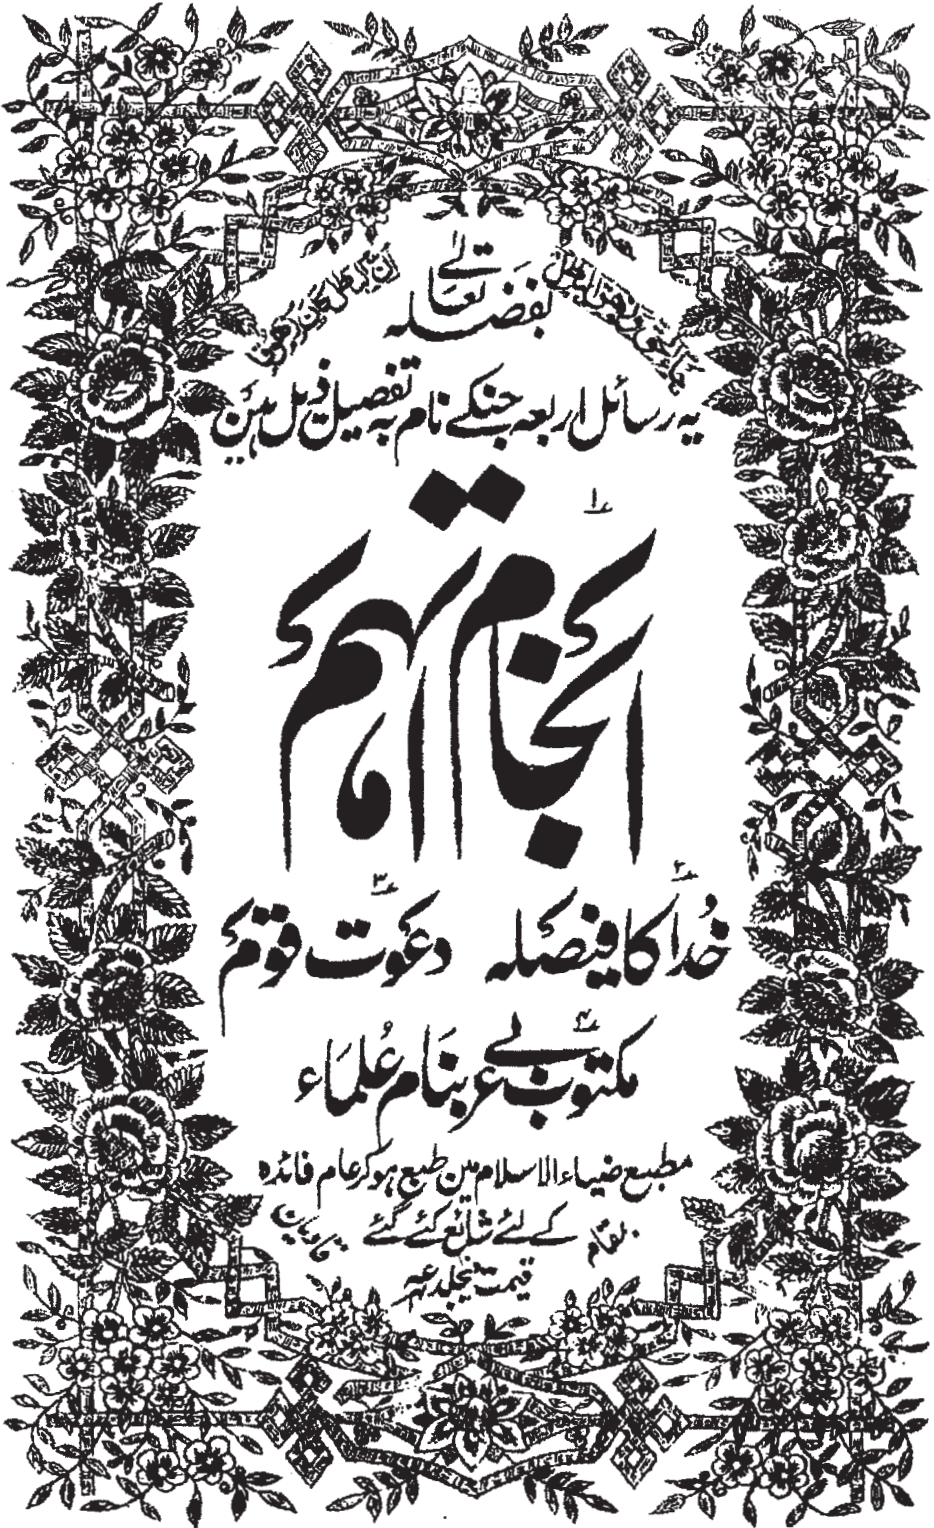 جاء الحق وزھق الباطل
ان الباطل کان زھوقا
بفضلہ تعالےٰ
یہ رسائل اربعہ جنکے نام بہ تفصیل ذیل ہین
۱
انجام آتہم
۲ خُدا کا فیصلہ ۳ دعوت قوم
۴ مکتوب عربی بنام عُلماء
مطبع ضیاء الاسلام مین طبع ہو کر عام فائدہ
کے لئے شائع کئے گئے
بمقام قادیان
قیمت فیجلد